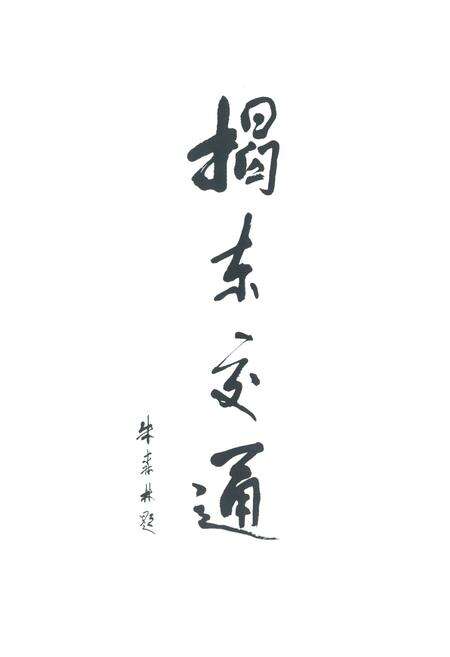 揭东交通
朱森林题